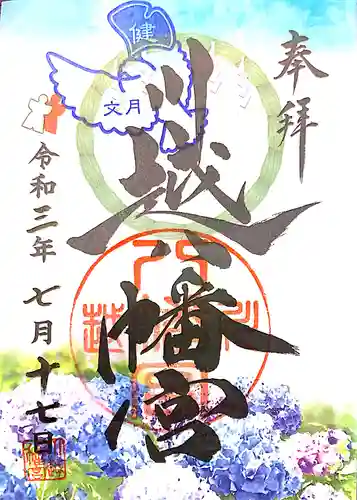 奉拝
川越八幡宮
健
文月
令和三年七月十七日